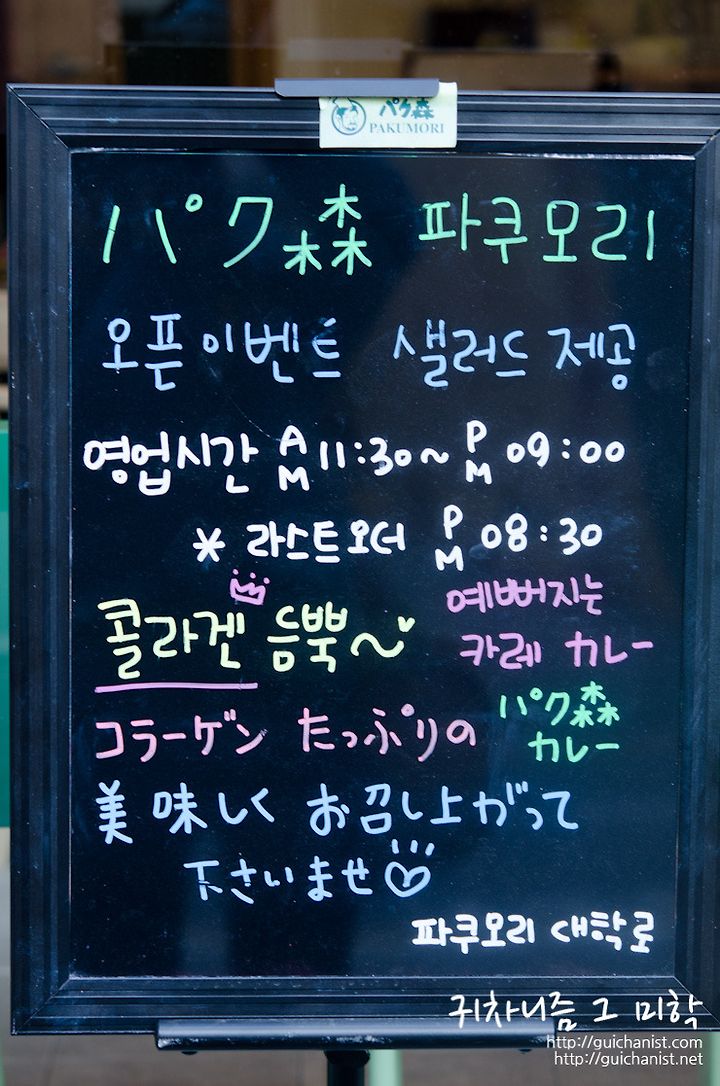 パク森
PAKUMORI
パク森 파쿠모리
오픈이벤트 샐러드 제공
영업시간 AM 11:30~ PM 09:00
* 라스트오더 PM 08:30
콜라겐 듬뿍~ 예뻐지는
카레 カレー
コラーゲン たっぷりの パク森
カレー
美味しく お召し上がって
下さいませ
파쿠모리 대학로
귀차니즘 그 미학
http://guichanist.com
http://guichanist.net